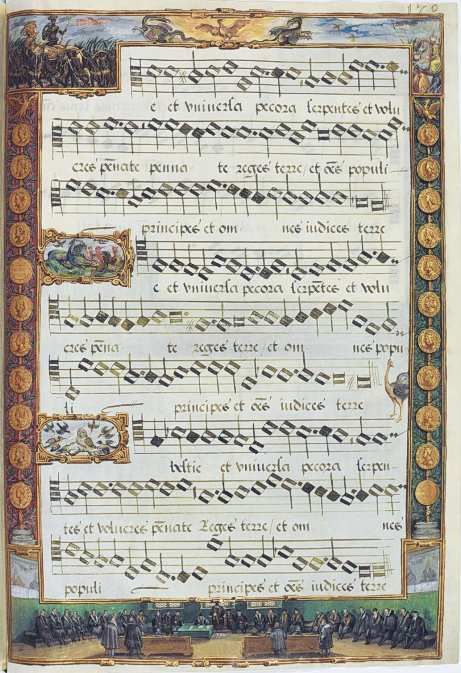 170
e et vniuersa pecora serpentes et volu
cres pēnate penna te reges terre / et oēs populi
principes et om nes iudices terre
e et vniuersa pecora serpētes et volu
cres pēna te reges terre / et om nes popu
li principes et oēs iudices terre
bestie et vniuersa pecora serpen-
tes et volucres pēnate Reges terre / et om nes
populi principes et oēs iudices terre